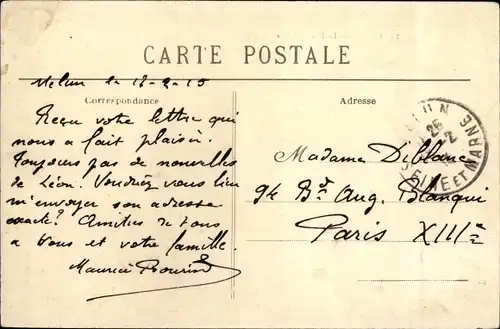 CARTE POSTALE
Melun le 18-2-15
Correspondance
Reçu votre lettre qui
nous a fait plaisir.
Toujours pas de nouvelles
de Léon. Voudriez vous bien
m'envoyer son adresse
exacte? Amitiés de tous
a vous et votre famille.
Maurice
Adresse
Madame Deblanc
94 Bd Aug. Blanqui
Paris XIIIe
MELUN
25
2
SEINE ET MARNE